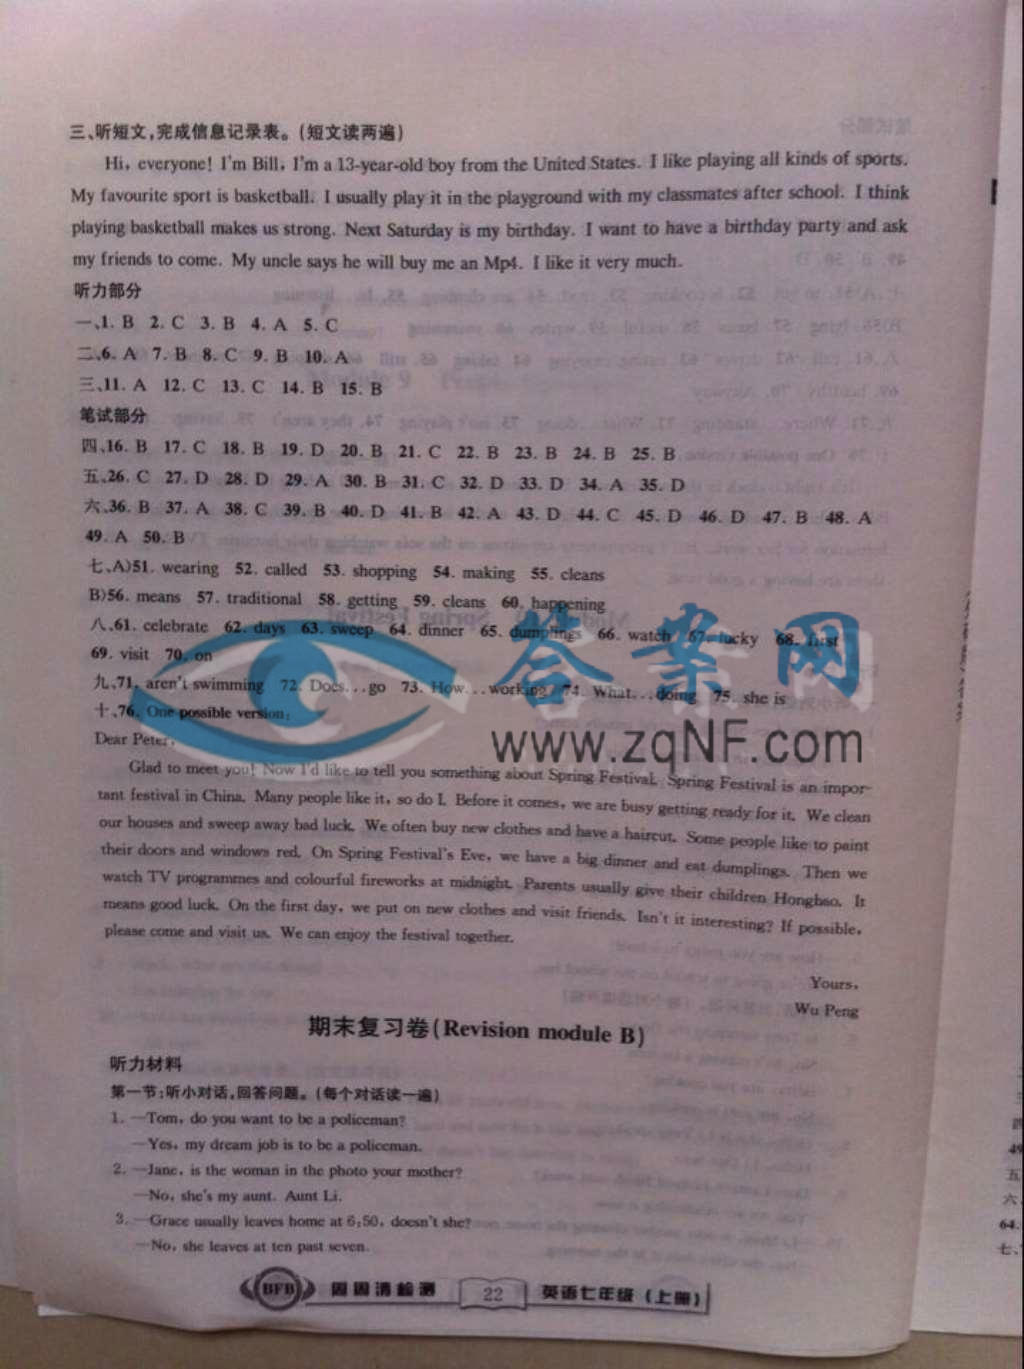 三、听短文,完成信息记录表。(短文读两遍)
Hi, everyone! I'm Bill, I'm a 13-year-old boy from the United States. I like playing all kinds of sports.
My favourite sport is basketball. I usually play it in the playground with my classmates after school. I think
playing basketball makes us strong. Next Saturday is my birthday. I want to have a birthday party and ask
my friends to come. My uncle says he will buy me an Mp4. I like it very much.
听力部分
一、1. B 2. C 3. B 4. A 5. C
二、6. A 7. B 8. C 9. B 10. A
三、11. A 12. C 13. C 14. B 15. B
笔试部分
四、16. B 17. C 18. B 19. D 20. B 21. C 22. B 23. B 24. B 25. B
五、26. C 27. D 28. D 29. A 30. B 31. C 32. D 33. D 34. A 35. D
六、36. B 37. A 38. C 39. B 40. D 41. B 42. A 43. D 44. C 45. D 46. D 47. B 48. A
49. A 50. B
七、A)51. wearing 52. called 53. shopping 54. making 55. cleans
B)56. means 57. traditional 58. getting 59. cleans 60. happening
八、61. celebrate 62. days 63. sweep 64. dinner 65. dumplings 66. watch 67. lucky 68. first
69. visit 70. on
九、71. aren't swimming 72. Does...go 73. How...working 74. What...doing 75. she is
十、76. One possible version:
Dear Peter,
Glad to meet you! Now I'd like to tell you something about Spring Festival. Spring Festival is an impor-
tant festival in China. Many people like it, so do I. Before it comes, we are busy getting ready for it. We clean
our houses and sweep away bad luck. We often buy new clothes and have a haircut. Some people like to paint
their doors and windows red. On Spring Festival's Eve, we have a big dinner and eat dumplings. Then we
watch TV programmes and colourful fireworks at midnight. Parents usually give their children Hongbao. It
means good luck. On the first day, we put on new clothes and visit friends. Isn't it interesting? If possible,
please come and visit us. We can enjoy the festival together.
Yours,
Wu Peng
答案网
www.zqNF.com
期末复习卷(Revision module B)
听力材料
第一节:听小对话,回答问题。(每个对话读一遍)
1. —Tom, do you want to be a policeman?
—Yes, my dream job is to be a policeman.
2. —Jane, is the woman in the photo your mother?
—No, she's my aunt. Aunt Li.
3. —Grace usually leaves home at 6:50, doesn't she?
—No, she leaves at ten past seven.
BFB 周周清检测 22 英语七年级(上册)
四
49
五
六
64.
七、